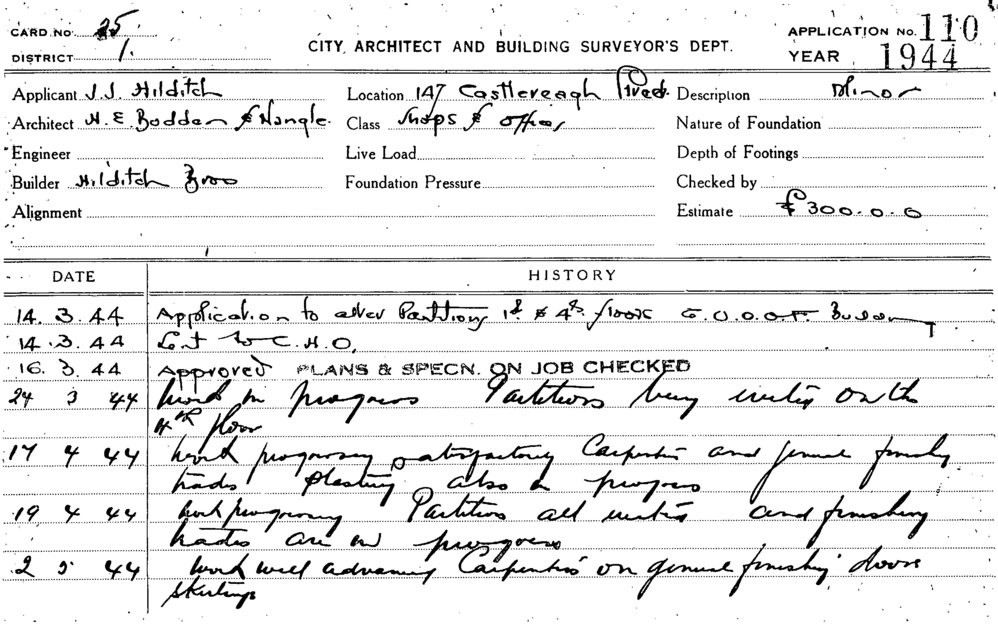 CARD NO. 25
DISTRICT 1.
CITY ARCHITECT AND BUILDING SURVEYOR'S DEPT.
APPLICATION No. 110
YEAR 1944
Applicant J.J. Hilditch Location 147 Castlereagh Street Description Minor
Architect H.E. Budden & Nangle. Class Shops & Offices Nature of Foundation
Engineer Live Load Depth of Footings
Builder Hilditch Bros Foundation Pressure Checked by
Alignment Estimate £300.0.0
DATE HISTORY
14. 3. 44 Application to alter Partitions 1st & 4th floors G.U.O.O.F. Building
14. 3. 44 Sent to C.H.O.
16. 3. 44 Approved PLANS & SPECN. ON JOB CHECKED
24 3 44 Work in progress Partitions being erected on the
4th floor
17 4 44 Work progressing satisfactory Carpenters and general finishing
trades plastering also in progress
19 4 44 Work progressing Partitions all erected and finishing
trades are in progress
2 5 44 Work well advancing Carpenters on general finishing doors
skirtings